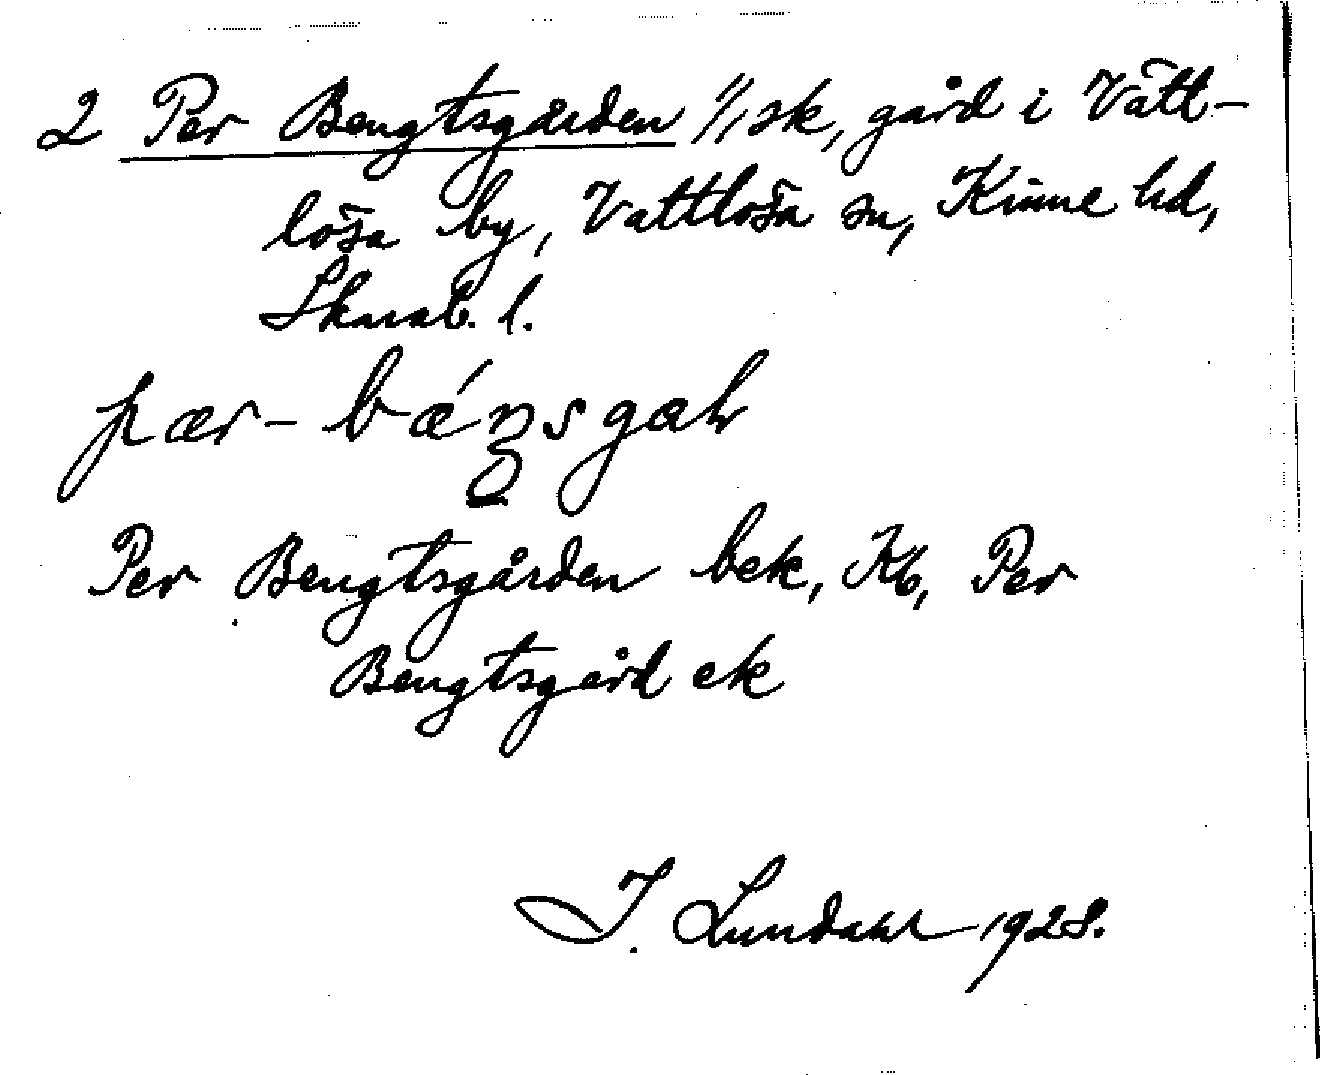 2 Per Bengtsgården 1/1 sk, gård i Vätt-
lösa by, Vättlösa sn, Kinne hd,
Skarab. l.
pær-bǽŋsgaḷ
Per Bengtsgården bek, Kb, Per
Bengtsgård ek
I. Lundahl 1928.